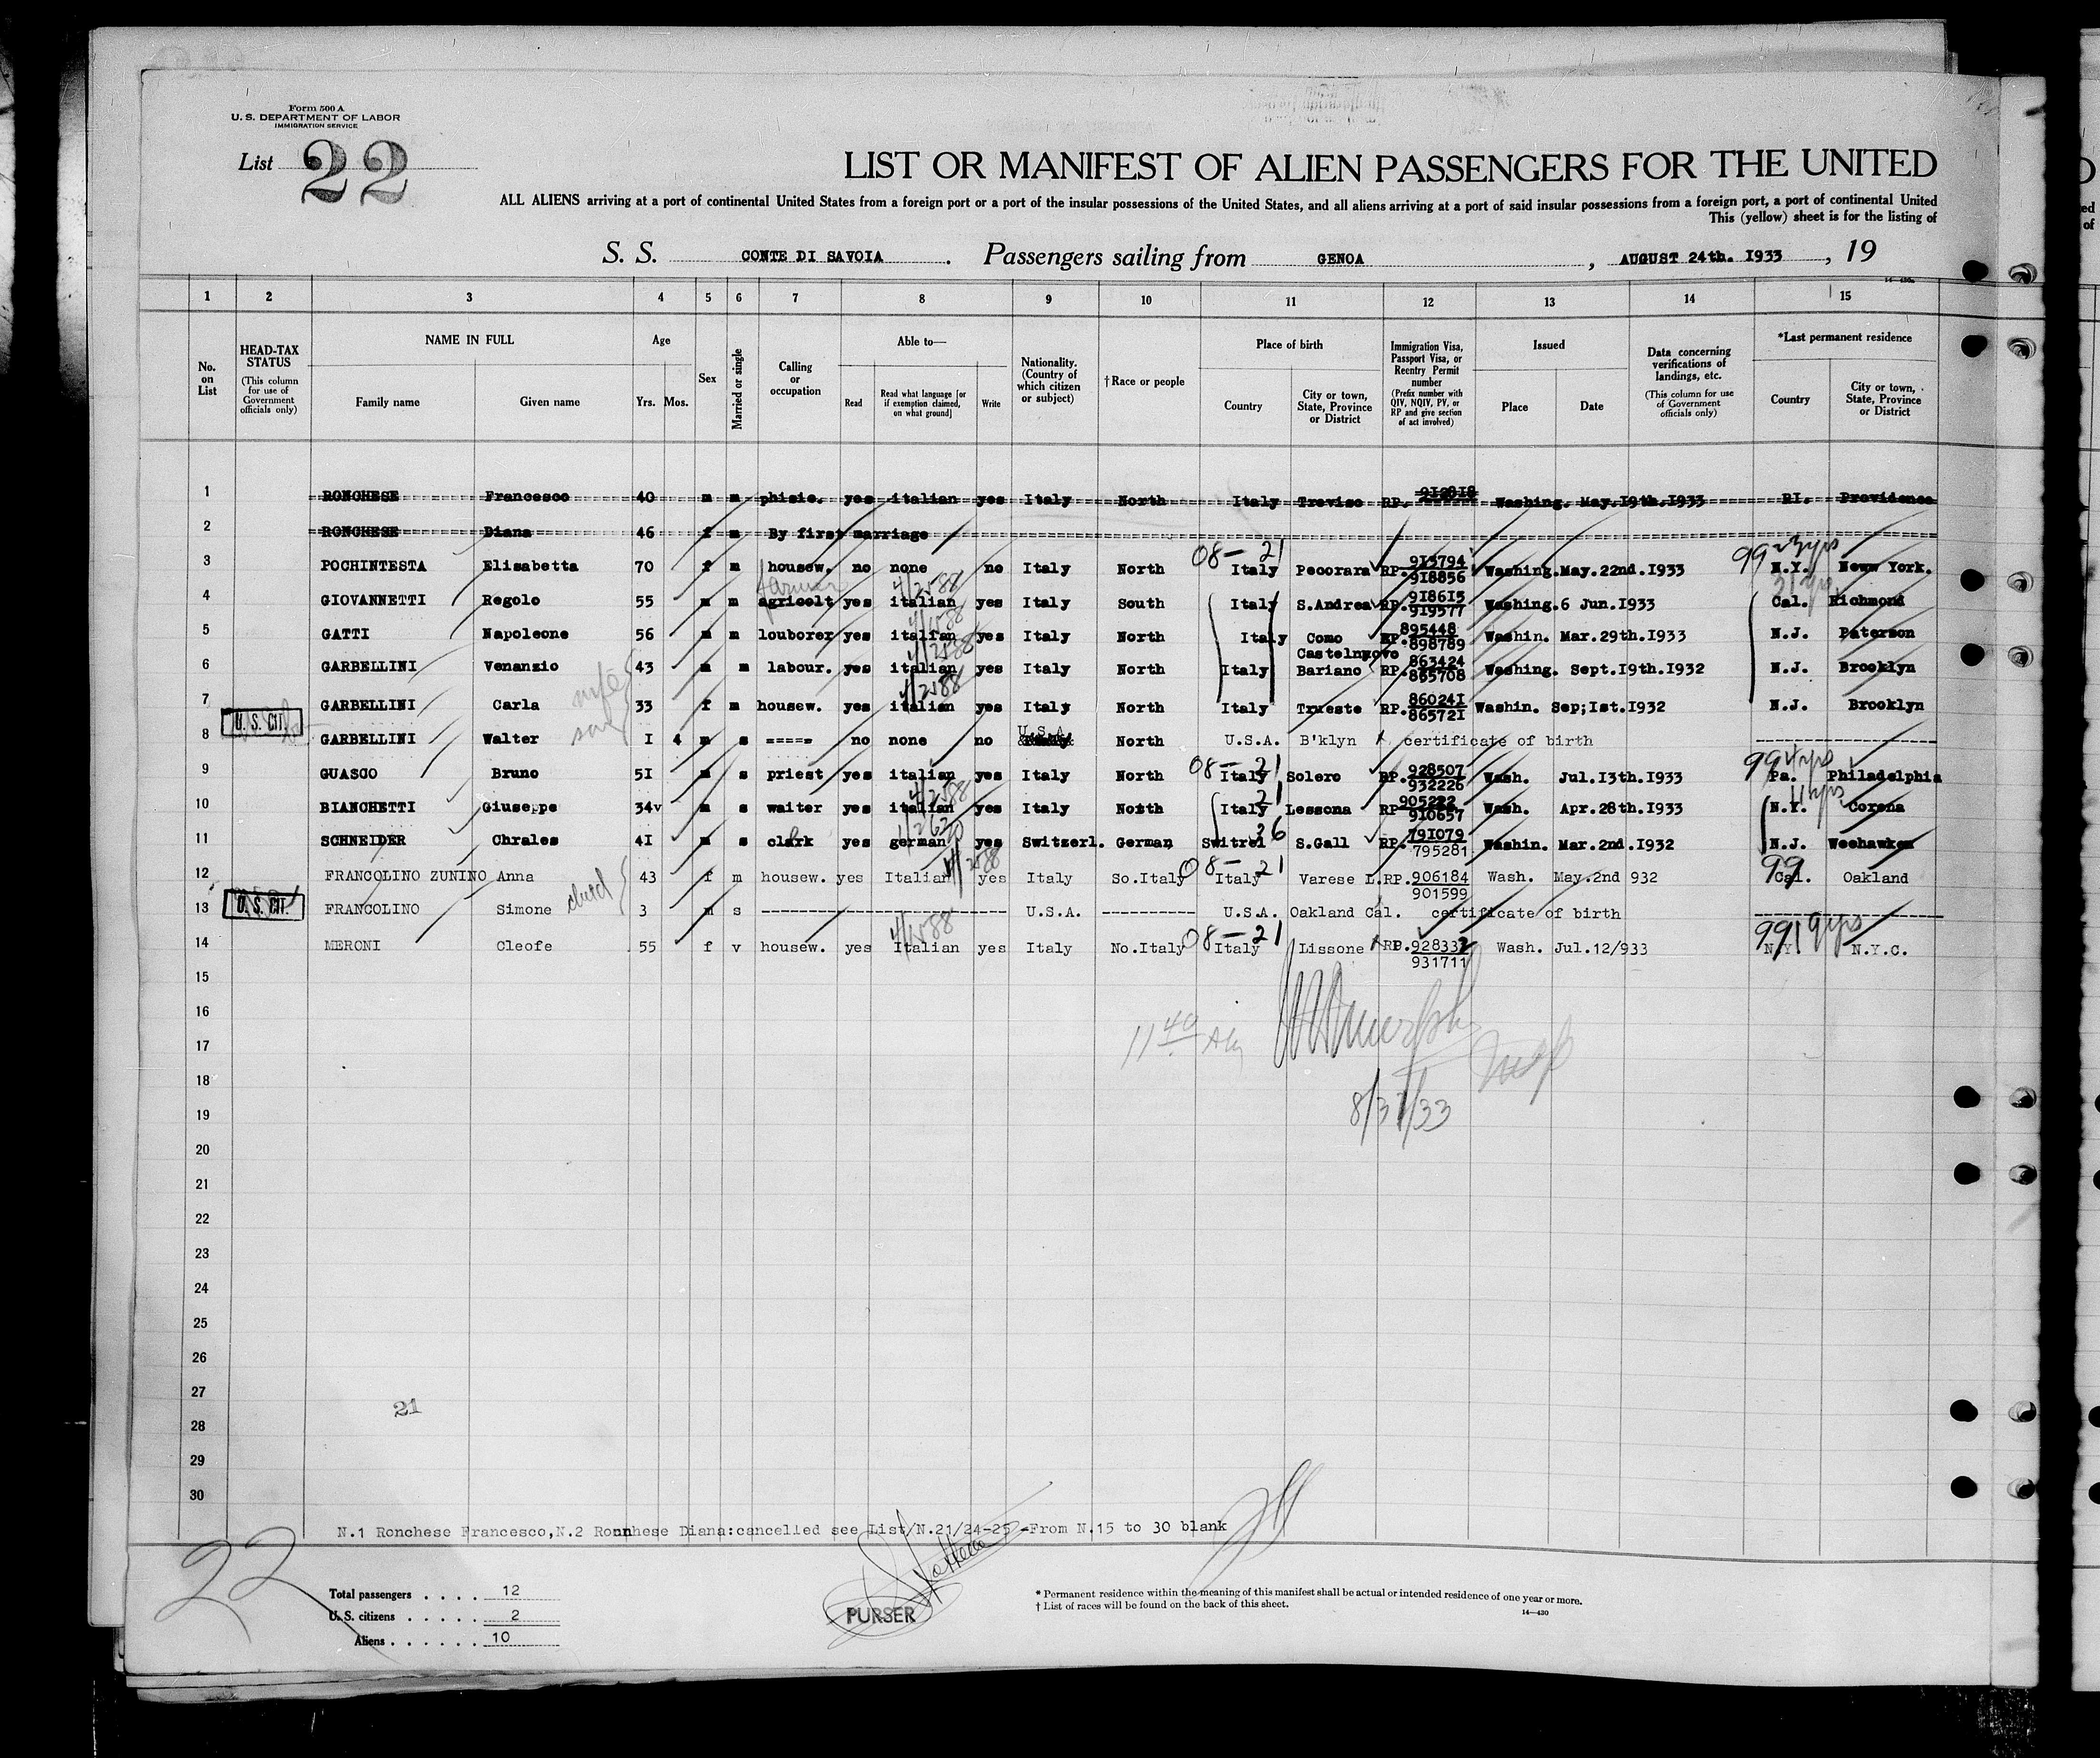 Form 500 A
U. S. DEPARTMENT OF LABOR
IMMIGRATION SERVICE
List 22
LIST OR MANIFEST OF ALIEN PASSENGERS FOR THE UNITED
ALL ALIENS arriving at a port of continental United States from a foreign port or a port of the insular possessions of the United States, and all aliens arriving at a port of said insular possessions from a foreign port, a port of continental United
This (yellow) sheet is for the listing of
S. S. CONTE DI SAVOIA . Passengers sailing from GENOA , AUGUST 24th. I933 , 19
1 2 3 4 5 6 7 8 9 10 11 12 13 14 15
No. on List
HEAD-TAX STATUS (This column for use of Government officials only)
NAME IN FULL Family name Given name
Age Yrs. Mos.
Sex
Married or single
Calling or occupation
Able to— Read Read what language [or if exemption claimed, on what ground] Write
Nationality. (Country of which citizen or subject)
†Race or people
Place of birth Country City or town, State, Province or District
Immigration Visa, Passport Visa, or Reentry Permit number (Prefix number with QIV, NQIV, PV, or RP and give section of act involved)
Issued Place Date
Data concerning verifications of landings, etc. (This column for use of Government officials only)
*Last permanent residence Country City or town, State, Province or District
1 RONCHESE Francesco 40 m m phisic. yes italian yes Italy North Italy Treviso RP. 912818 Washing. May.I9th.I933 RI. Providence
2 RONCHESE Diana 46 f m By first marriage
08-21 99 23yrs
3 POCHINTESTA Elisabetta 70 f m housew. no none no Italy North Italy Pecorara RP. 913794 918856 Washing.May.22nd.I933 N.Y. Neww York.
farmer 4/2588
4 GIOVANNETTI Regolo 55 m m agricolt yes italian yes Italy South Italy S.Andrea RP. 918615 919577 Washing.6 Jun.I933 Cal. Richmond
5 GATTI Napoleone 56 m m louborer yes italian yes Italy North Italy Como RP. 895448 898789 Washin. Mar.29th.I933 N.J. Paterson
6 GARBELLINI Venanzio 43 m m labour. yes italian yes Italy North Italy Castelnuovo Bariano RP. 863424 865708 Washing. Sept.I9th.I932 N.J. Brooklyn
wife 4/2588
7 GARBELLINI Carla 33 f m housew. yes italian yes Italy North Italy Trieste RP. 86024I 86572I Washin. Sep;Ist.I932 N.J. Brooklyn
U. S. CIT. son
8 GARBELLINI Walter I 4 m s ===== no none no U.S.A. North U.S.A. B'klyn certificate of birth
08-21 99 4yrs
9 GUASCO Bruno 5I m s priest yes italian yes Italy North Italy Solero RP. 928507 932226 Wash. Jul.I3th.I933 Pa. Philadelphia
4/2588 21 11yrs
10 BIANCHETTI Giuseppe 34v m s waiter yes italian yes Italy North Italy Lessona RP 905222 910657 Wash. Apr.28th.I933 N.Y. Corona
36
11 SCHNEIDER Chrales 4I m s clerk yes german yes Switzerl. German Switrel S.Gall RP. 791079 795281 Washin. Mar.2nd.I932 N.J. Weehawken
08-21 4/2588 99
12 FRANCOLINO ZUNINO Anna 43 f m housew. yes Italian yes Italy So.Italy Italy Varese L.RP. 906184 901599 Wash. May.2nd 932 Cal. Oakland
U. S. CIT. child
13 FRANCOLINO Simone 3 m s U.S.A. U.S.A. Oakland Cal. certificate of birth
4/2588 08-21 99 19yrs
14 MERONI Cleofe 55 f v housew. yes Italian yes Italy No.Italy Italy Lissone RP. 928332 931711 Wash. Jul.12/933 N.Y. N.Y.C.
15
16
17 11 40
18
19 8/31/33
20
21
22
23
24
25
26
27
21
28
29
30
N.1 Ronchese Francesco,N.2 Ronnhese Diana:cancelled see List/N.21/24-25 -From N.15 to 30 blank
22
Total passengers . . . . 12
U. S. citizens . . . . . 2
Aliens . . . . . . 10
PURSER
* Permanent residence within the meaning of this manifest shall be actual or intended residence of one year or more.
† List of races will be found on the back of this sheet.
14—430